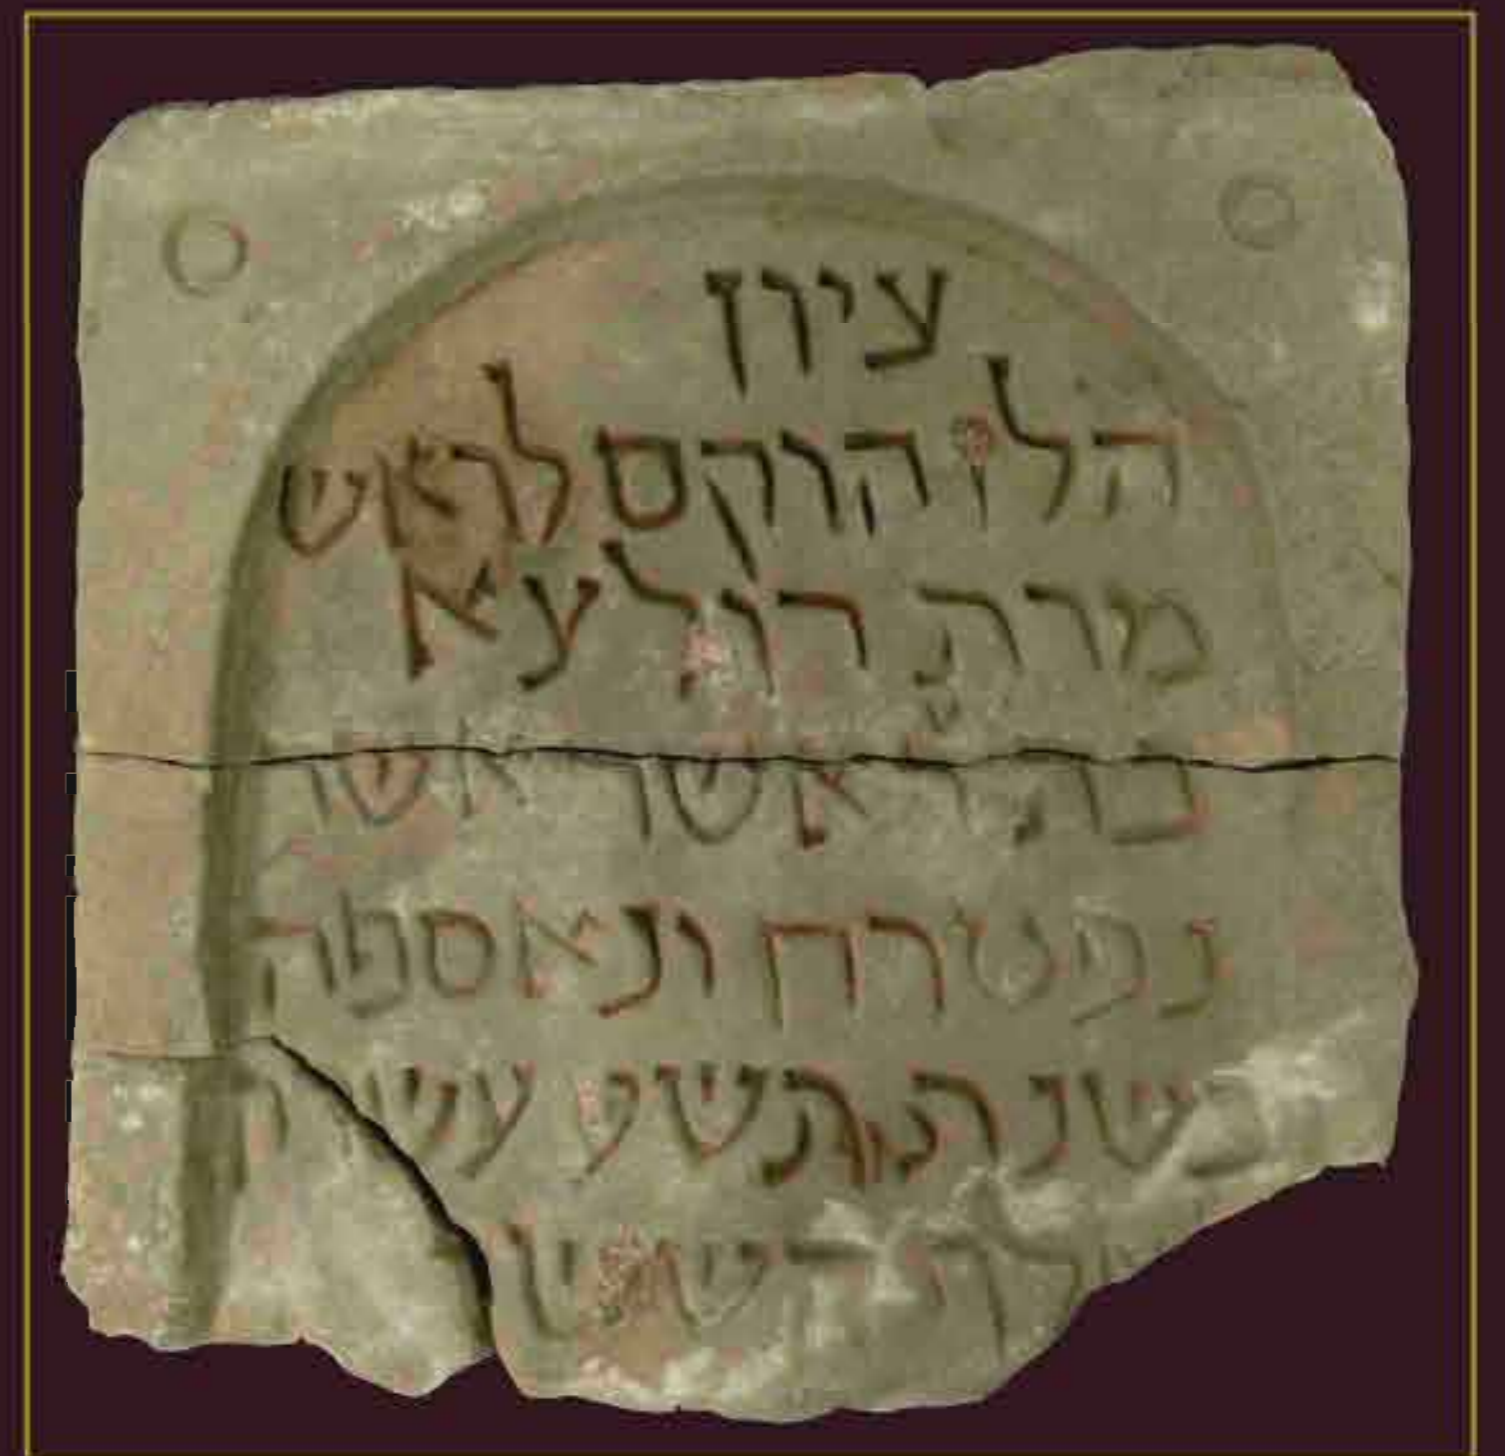 ציון
הלז הוקם לראש
מרת דולצא
בת ר אשר אשר
נפטרה ונאספה
בשנת תשע עשרה
לף הששי